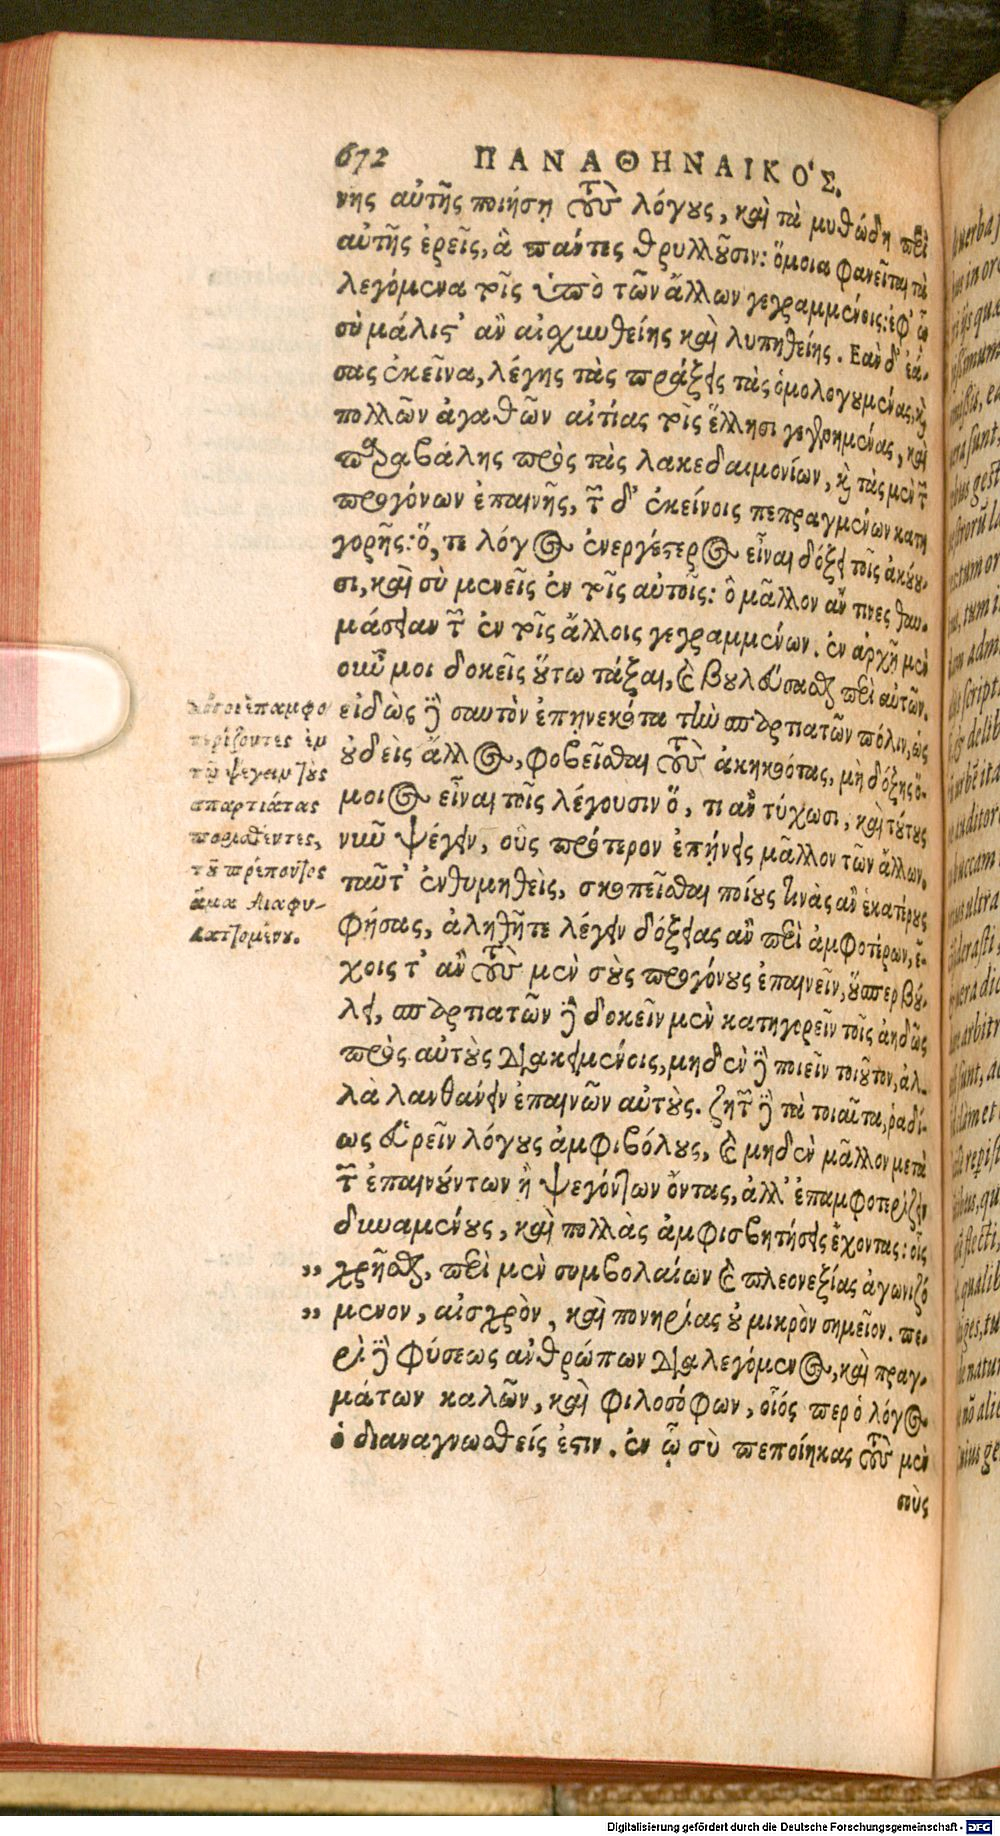 672 ΠΑΝΑΘΗΝΑΙΚΟ'Σ.
νης αὐτῆς ποιήσῃ τοὺς λόγους, καὶ τὰ μυθώδη περὶ
αὐτῆς ἐρεῖς, ἃ πάντες θρυλλοῦσιν: ὅμοια φανεῖται τὰ
λεγόμενα τοῖς ὑπὸ τῶν ἄλλων γεγραμμένοις: ἐφ' ᾧ
σὺ μάλιστ' ἂν αἰσχυνθείης καὶ λυπηθείης. Εὰν δ' ἐά-
σας ἐκεῖνα, λέγῃς τὰς πράξεις τὰς ὁμολογουμένας, καὶ
πολλῶν ἀγαθῶν αἰτίας τοῖς ἕλλησι γεγενημένας, καὶ
παραβάλῃς πρὸς τὰς λακεδαιμονίων, καὶ τὰς μὲν τῶν
προγόνων ἐπαινῇς, τῶν δ' ἐκείνοις πεπραγμένων κατη
γορῇς: ὅ, τε λόγος ἐνεργέστερος εἶναι δόξει τοῖς ἀκούου-
σι, καὶ σὺ μενεῖς ἐν τοῖς αὐτοῖς: ὃ μᾶλλον ἄν τινες θαυ-
μάσειαν τῶν ἐν τοῖς ἄλλοις γεγραμμένων. ἐν ἀρχῇ μὲν
οὖν μοι δοκεῖς οὕτω τάξαι, καὶ βουλεύσασθαι περὶ αὐτῶν.
εἰδὼς δὲ σαυτὸν ἐπῃνεκότα τὴν σπαρτιατῶν πόλιν, ὡς
οὐδεὶς ἄλλος, φοβεῖσθαι τοὺς ἀκηκοότας, μὴ δόξῃς ὅ-
μοιος εἶναι τοῖς λέγουσιν ὅ, τι ἂν τύχωσι, καὶ τούτους
νῦν ψέγειν, οὓς πρότερον ἐπῄνεις μᾶλλον τῶν ἄλλων.
ταῦτ' ἐνθυμηθεὶς, σκοπεῖσθαι ποίους τινὰς ἂν ἑκατέρους
φήσας, ἀληθῆ τε λέγειν δόξειας ἂν περὶ ἀμφοτέρων, ἔ-
χοις τ' ἂν τοὺς μὲν σοὺς προγόνους ἐπαινεῖν, οὕσπερ βού-
λει, σπαρτιατῶν δὲ δοκεῖν μὲν κατηγορεῖν τοῖς ἀηδῶς
πρὸς αὐτοὺς διακειμένοις, μηδὲν δὲ ποιεῖν τοιοῦτον, ἀλ-
λὰ λανθάνειν ἐπαινῶν αὐτούς. ζητῶν δὲ τὰ τοιαῦτα, ῥᾳδί-
ως εὑρεῖν λόγους ἀμφιβόλους, καὶ μηδὲν μᾶλλον μετὰ
τῶν ἐπαινούντων ἢ ψεγόντων ὄντας, ἀλλ' ἐπαμφοτερίζειν
δυναμένους, καὶ πολλὰς ἀμφισβητήσεις ἔχοντας: οἷς
„ χρῆσθαι, περὶ μὲν συμβολαίων καὶ πλεονεξίας ἀγωνιζό
„ μενον, αἰσχρὸν, καὶ πονηρίας οὐ μικρὸν σημεῖον. πε-
ρὶ δὲ φύσεως ἀνθρώπων διαλεγόμενος, καὶ πραγ-
μάτων καλῶν, καὶ φιλοσόφων, οἷός περ ὁ λόγος
ὁ διαναγνωσθείς ἐστιν. ἐν ᾧ σὺ πεποίηκας τοὺς μὲν
σοὺς
λόγοι ἐπαμφο
τερίζοντες ἐμ
τῷ ψέγειν τοὺς
σπαρτιάτας
προσαθέντες,
τοῦ πρέποντος
ἅμα διαφυ-
λαττομένου.
Digitalisierung gefördert durch die Deutsche Forschungsgemeinschaft - DFG